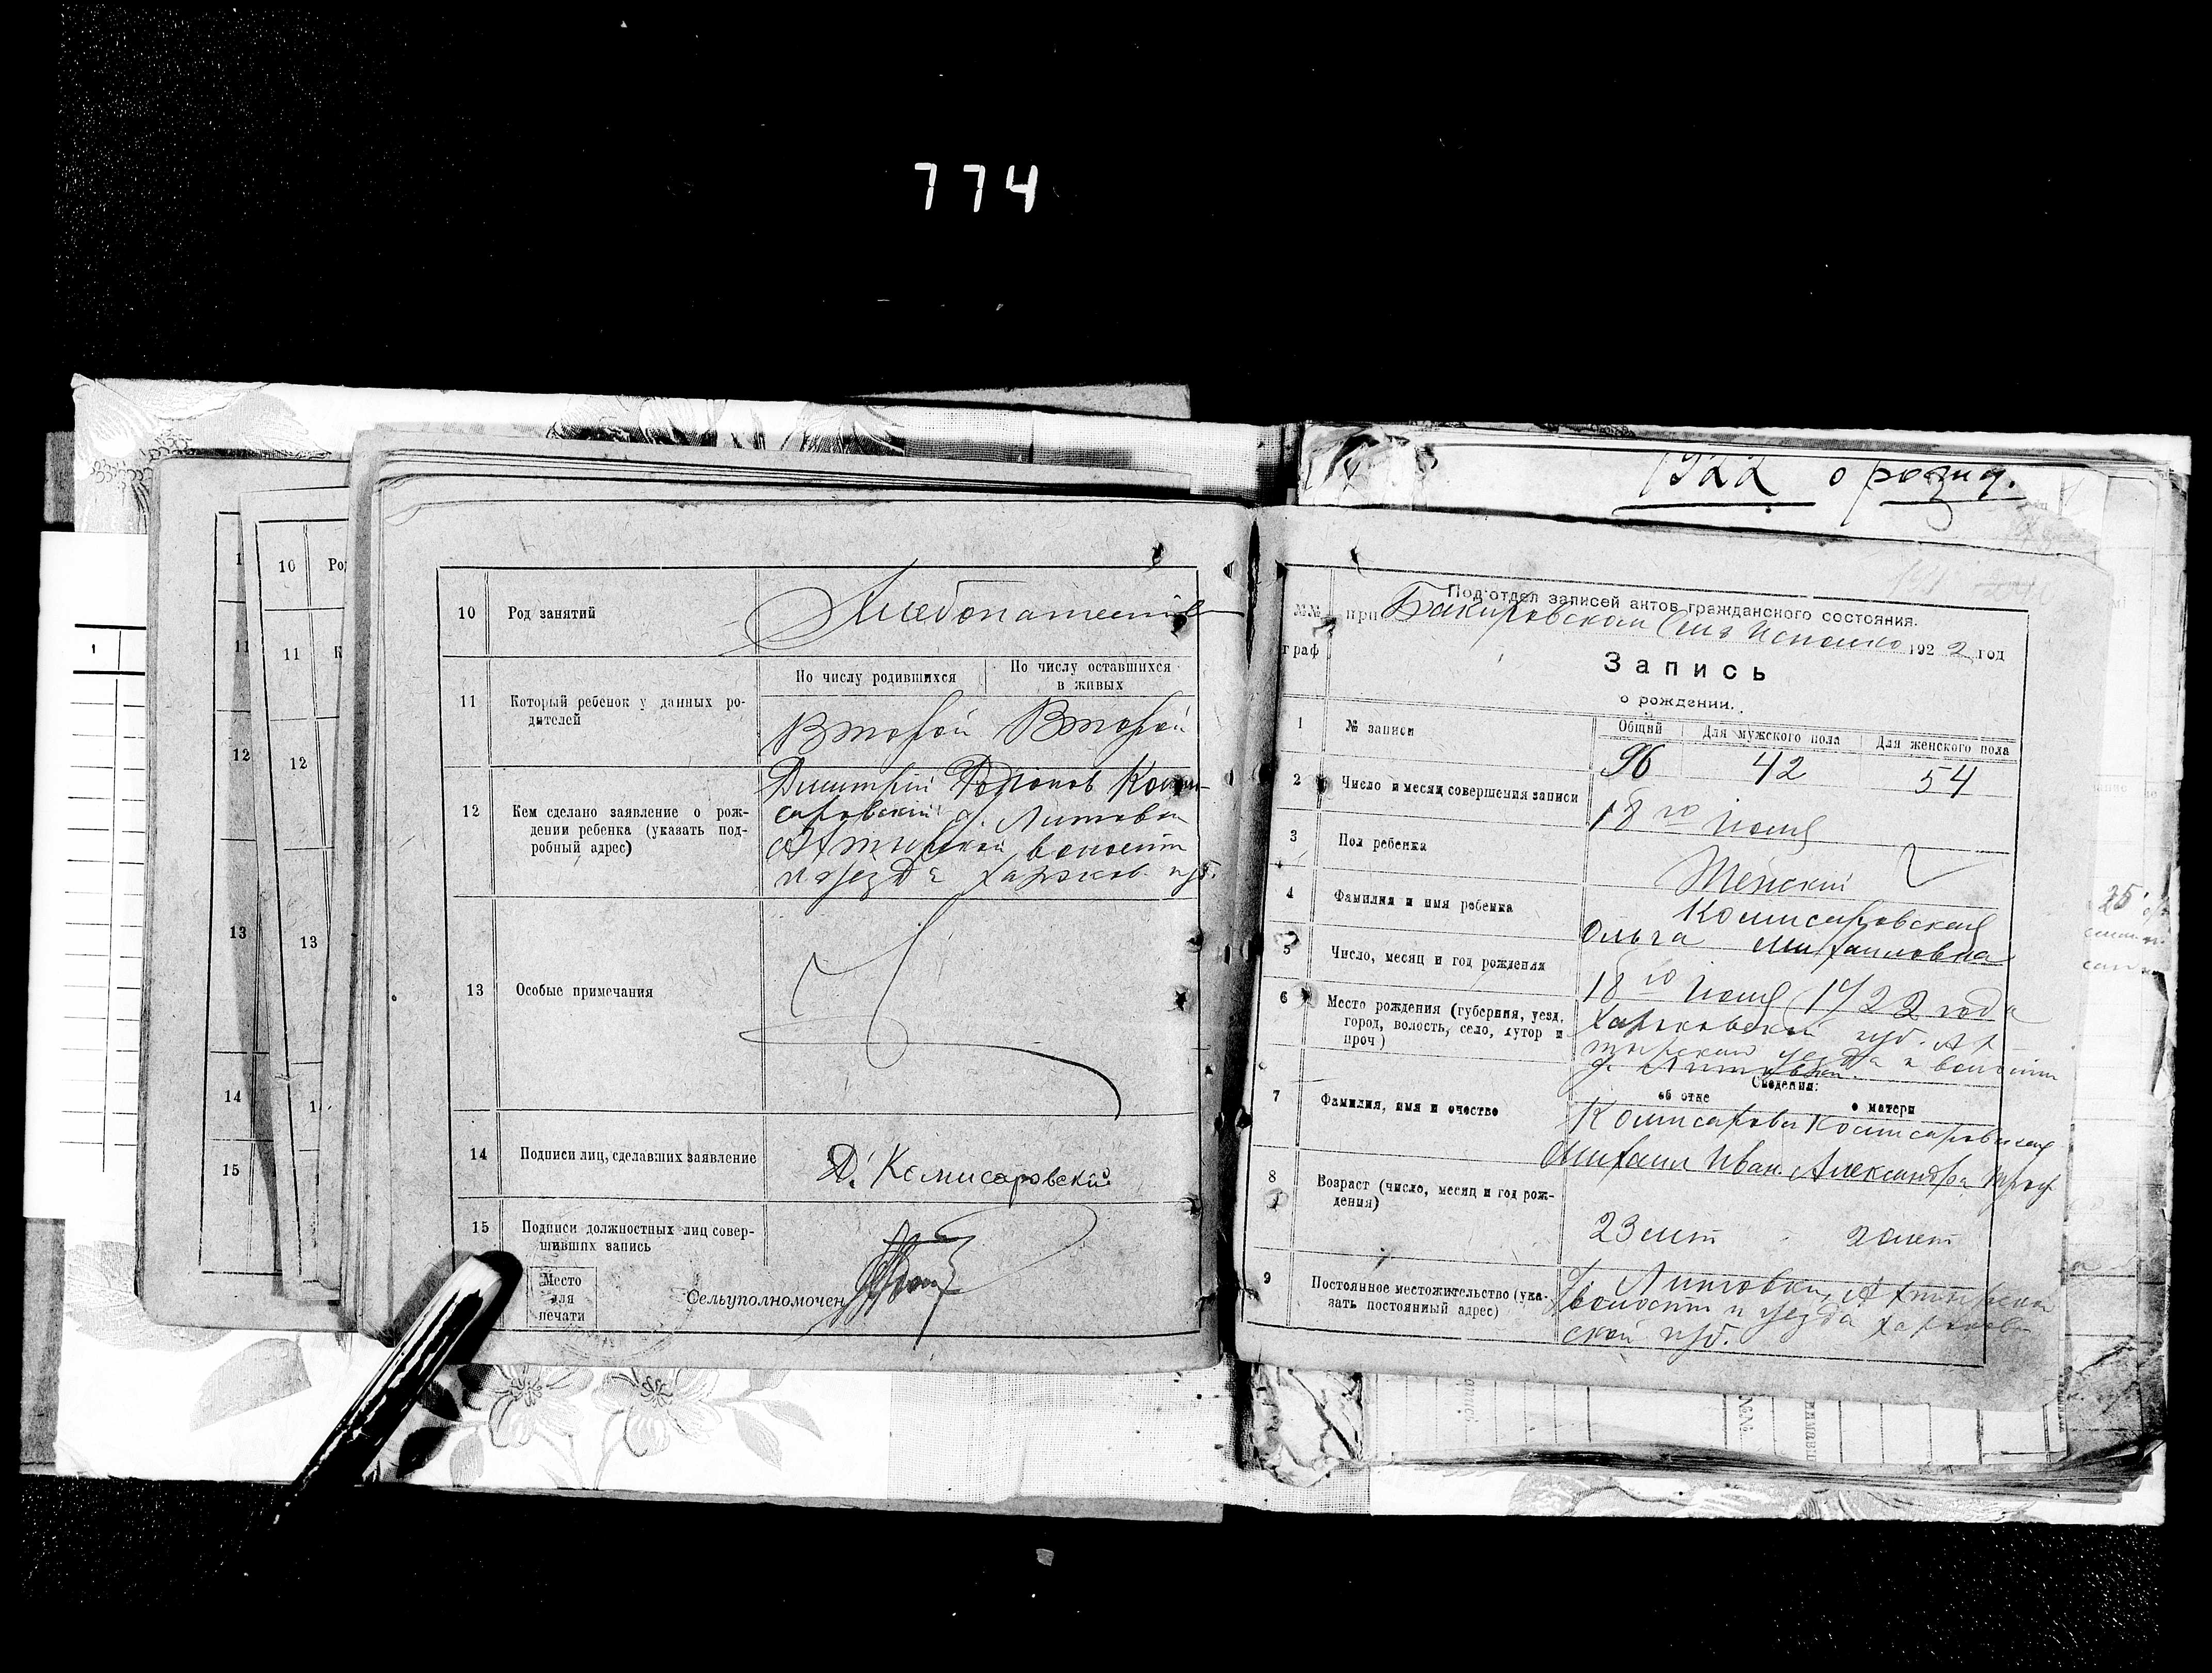 774
1922 о рожд.
10 Род занятий
Хлебопашество
11 Который ребенок у данных ро-
дителей
По числу родившихся
По числу оставшихся
в живых
Второй Второй
12 Кем сделано заявление о рож-
дении ребенка (указать под-
робный адрес)
Димитрий Коми-
саровский д. Литовки
Ахтырской волости
и уезда Харьков губ.
13 Особые примечания
14 Подписи лиц, сделавших заявление
Д. Комисаровский
15 Подписи должностных лиц совер-
шивших запись
Место
для
печати
Сельуполномочен
№№
граф
Под'отдел записей актов гражданского состояния.
при Бакировском
1922 год
Запись
о рождении.
1 № записи
Общий Для мужского пола Для женского пола
96 42 54
2 Число и месяц совершения записи
18 го Июля
3 Пол ребенка
Женский
4 Фамилия и имя ребенка
Комисаровская
Ольга Михайловна
5 Число, месяц и год рождения
18 го Июля 1922 года
6 Место рождения (губерния, уезд,
город, волость, село, хутор и
проч)
Харьковской губ. Ах
тырской уезда и волости
д. Литовки.
Сведения:
об отце о матери
7 Фамилия, имя и очество
Комисаровск Комисаровская
Михаил Иван. Александра Проф
8 Возраст (число, месяц и год рож-
дения)
23 лет 20 лет
9 Постоянное местожительство (ука-
зать постоянный адрес)
д. Литовки, Ахтырской
волости и уезда Харьков
ской губ.
1
10 Ро
11
12
13
14
15